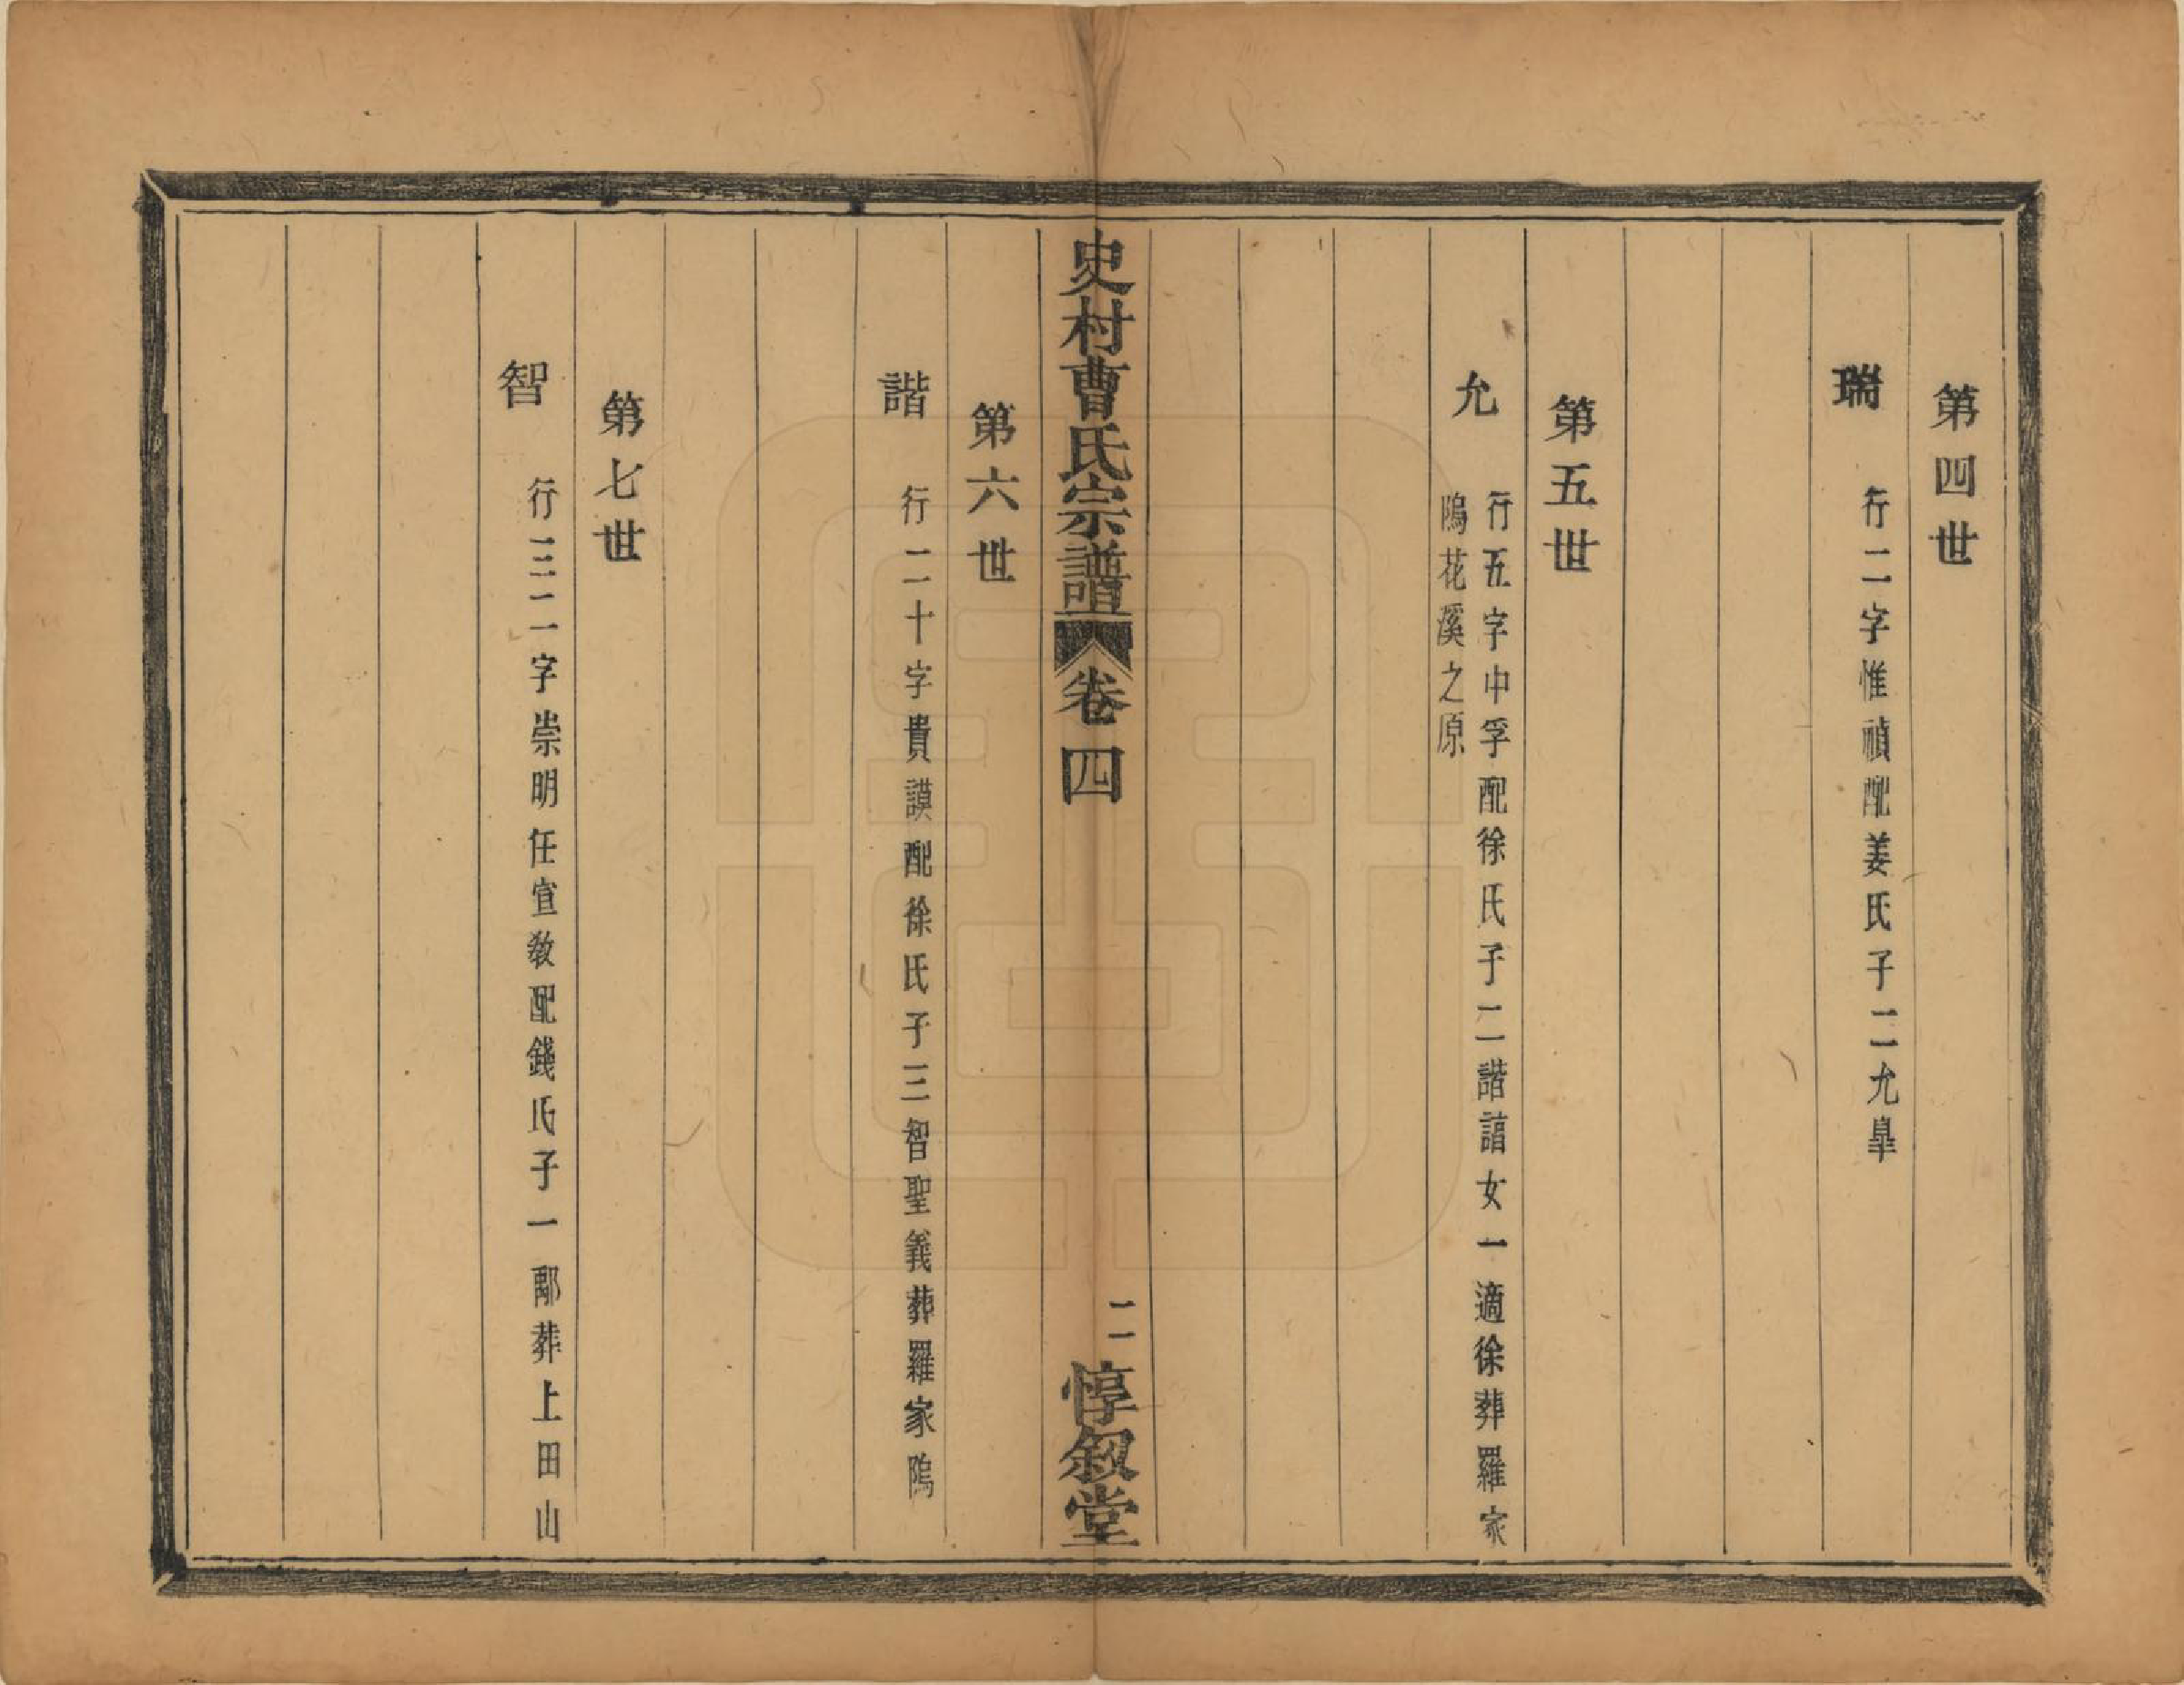 第四世
瑞　行二字惟禎配姜氏子二允臯
第五世
允　行五字中孚配徐氏子二諧諳女一適徐葬羅家
隖花溪之原
史村曹氏宗譜　卷四　二　惇叙堂
第六世
諧　行二十字貴謨配徐氏子三智聖義葬羅家隖
第七世
智　行三二字崇明任宣敎配錢氏子一鄅葬上田山